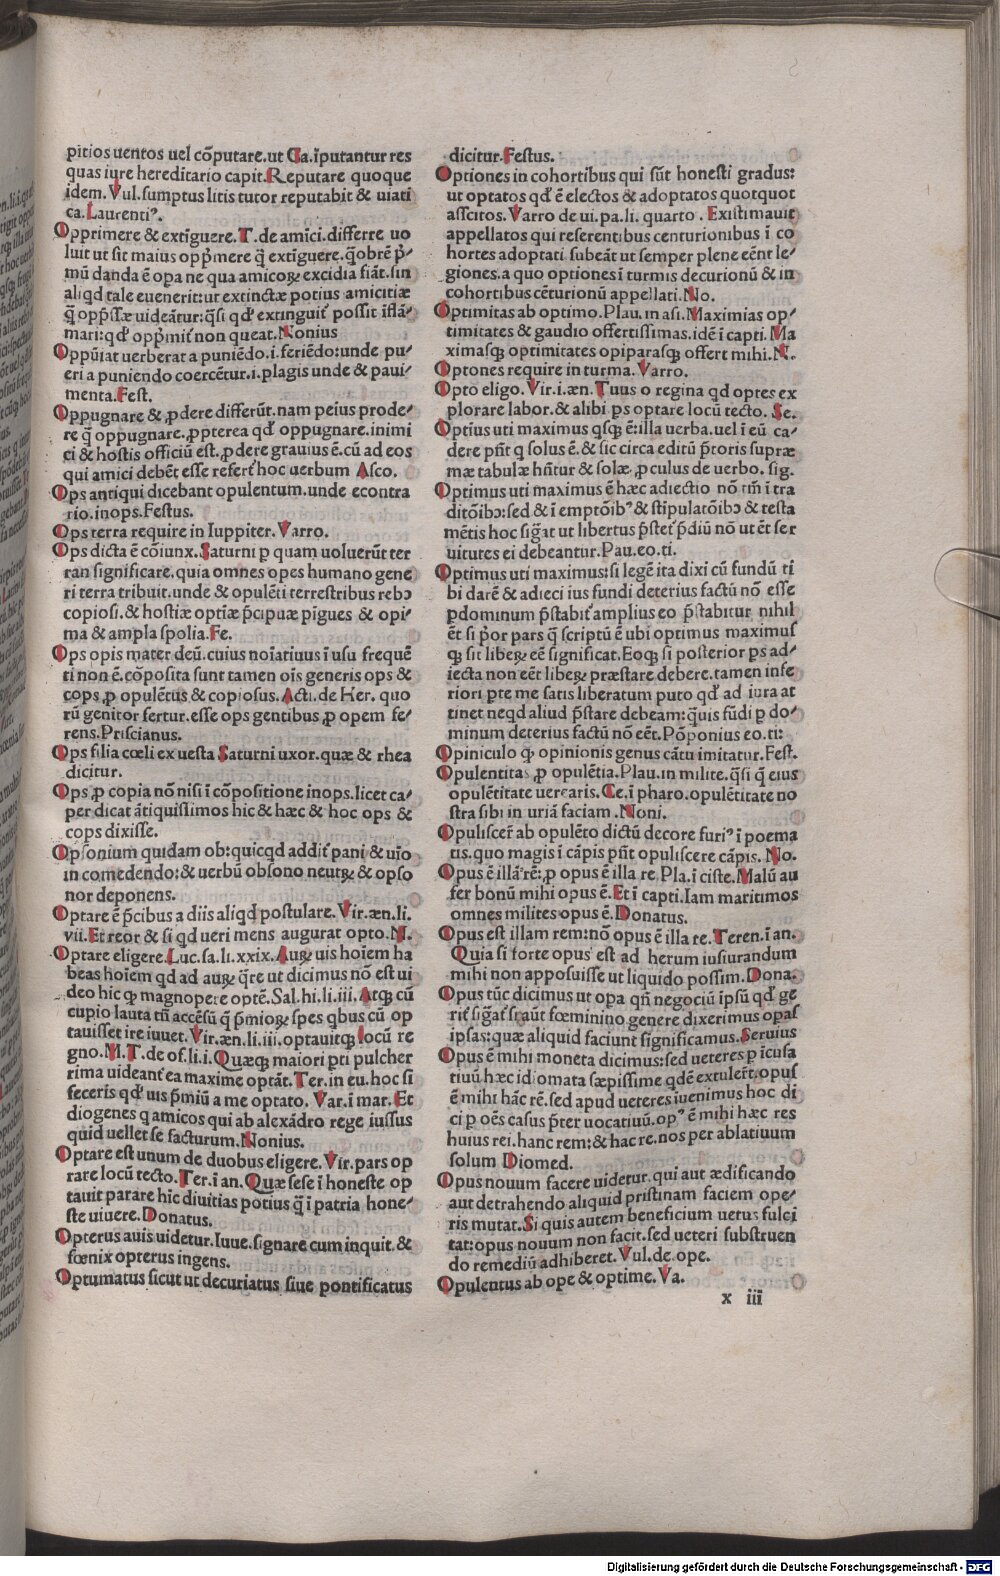 pitios uentos uel cōputare.ut Ga.īputantur res
quas iure hereditario capit.Reputare quoque
idem.Vul.sumptus litis tutor reputabit & uiati
ca.Laurentiꝰ.
Opprimere & extīguere.T.de amici.differre uo
luit ut sit maius opp̄mere q̄ extīguere.qobrē p̄
mū danda ē opa ne qua amicoꝝ excidia fiāt.sin
aliqd tale euenerit:ut extinctæ potius amicitiæ
q̄ opp̄ssæ uideātur:q̄si qd̓ extinguit̓ possit īflā⸗
mari:qd̓ opp̄mit̓ non queat.Nonius
Oppūiat uerberat a puniēdo.i.feriēdo:unde pu⸗
eri a puniendo coercētur.i.plagis unde & paui⸗
menta.Fest.
Oppugnare & ꝓdere differūt.nam peius prode⸗
re q̄ oppugnare.ꝓpterea qd̓ oppugnare.inimi
ci & hostis officiū est.ꝓdere grauius ē.cū ad eos
qui amici debēt esse refert̓ hoc uerbum Asco.
Ops antiqui dicebant opulentum.unde econtra
rio.inops.Festus.
Ops terra require in Iuppiter.Varro.
Ops dicta ē cōiunx.Saturni ꝑ quam uoluerūt ter
ran significare.quia omnes opes humano gene
ri terra tribuit.unde & opulēti terrestribus rebꝰ
copiosi.& hostiæ optīæ p̄cipuæ pīgues & opi⸗
ma & ampla spolia.Fe.
Ops opis mater deū.cuius noīatiuus ī usu frequē
ti non ē.cōposita sunt tamen oīs generis ops &
cops ꝓ opulētus & copiosus.Actū.de Her. quo
rū genitor fertur.esse ops gentibus ꝓ opem fe⸗
rens.Priscianus.
Ops filia cœli ex uesta Saturni uxor.quæ & rhea
dicitur.
Ops ꝓ copia nō nisi ī cōpositione inops.licet ca⸗
per dicat ātiquissimos hic & hæc & hoc ops &
cops dixisse.
Opsonium quidam ob:quicqd addit̓ pani & uīo
in comedendo:& uerbū obsono neutꝝ & opso
nor deponens.
Optare ē p̄cibus a diis aliqd postulare.Vir.æn.li.
vii.Et reor & si qd ueri mens augurat opto.N.
Optare eligere.Luc.sa.li.xxix.Auꝝ uis hoīem ha
beas hoīem qd ad auꝝ q̄re ut dicimus nō est ui
deo hic qꝫ magnopere optē.Sal.hi.li.iii.Atqꝫ cū
cupio lauta tn̄ accēsū q̄ p̄mioꝝ spes qbus cū op
tauisset ire iuuet.Vir.æn.li.iii.optauitqꝫ locū re
gno.M.T.de of.li.i.Quæqꝫ maiori ꝑti pulcher
rima uideant̓ ea maxime optāt.Ter.in eu.hoc si
feceris qd̓ uis p̄miū a me optato. Var.ī mar.Et
diogenes q amicos qui ab alexādro rege iussus
quid uellet se facturum.Nonius.
Optare est unum de duobus eligere.Vir.pars op
rare locū tecto.Ter.ī an.Quæ sese ī honeste op
tauit parare hic diuitias potius q̄ ī patria hone⸗
ste uiuere.Donatus.
Opterus auis uidetur.Iuue.signare cum inquit.&
fœnix opterus ingens.
Optumatus sicut ut decuriatus siue pontificatus
dicitur.Festus.
Optiones in cohortibus qui sūt honesti gradus:
ut optatos qd̓ ē electos & adoptatos quotquot
asscitos.Varro de ui.pa.li.quarto.Existimauit
appellatos qui referentibus centurionibus ī co
hortes adoptati subeāt ut semper plene eēnt le⸗
giones.a quo optiones ī turmis decurionū & in
cohortibus cēturionū appellati.No.
Optimitas ab optimo.Plau.in asi.Maximias op⸗
timitates & gaudio offertissimas.idē ī capti.Ma
ximasqꝫ optimitates opiparasqꝫ offert mihi.N.
Optones require in turma.Varro.
Opto eligo.Vir.i.æn.Tuus o regina qd optes ex
plorare labor.& alibi ꝑs optare locū tecto.Se.
Optīus uti maximus qsqꝫ ē:illa uerba.uel ī eū ca⸗
dere pn̄t q solus ē.& sic circa editū p̄toris supræ
mæ tabulæ hn̄tur & solæ.ꝓculus de uerbo.sig.
Optimus uti maximus ē hæc adiectio nō tm̄ ī tra
ditōibꝰ:sed & ī emptōibꝰ & stipulatōibꝰ & testa
mētis hoc sig̓at ut libertus p̄stet̓ p̄diū nō ut ēt ser
uitutes ei debeantur.Pau.eo.ti.
Optimus uti maximus:si legē ita dixi cū fundū ti
bi darē & adieci ius fundi deterius factū nō esse
ꝑdominum p̄stabit̓ amplius eo p̄stabitur nihil
ēt si p̓or pars q̄ scriptū ē ubi optimus maximus
qꝫ sit libeꝝ eē significat.Eoqꝫ si posterior ꝑs ad⸗
iecta non eēt libeꝝ præstare debere.tamen infe
riori ꝑte me satis liberatum puto qd̓ ad iura at
tinet neqd aliud p̄stare debeam:q̄uis fūdi ꝑ do⸗
minum deterius factū nō eēt.Pōponius eo.ti:
Opiniculo qꝫ opinionis genus cātu imitatur.Fest.
Opulentitas ꝓ opulētia.Plau.in milite.q̄si q̄ eius
opulētitate uereris.Ce.ī pharo.opulētitate no
stra sibi in uriā faciam.Noni.
Opuliscer̄ ab opulēto dictū decore furiꝰ ī poema
tis.quo magis ī cāpis pn̄t opuliscere cāpis.No.
Opus ē illā rē:ꝓ opus ē illa re Pla.ī ciste.Malū au
fer bonū mihi opus ē.Et ī capti.Iam maritimos
omnes milites opus ē.Donatus.
Opus est illam rem:nō opus ē illa re.Teren.ī an.
Quia si forte opus est ad herum iusiurandum
mihi non apposuisse ut liquido possim.Dona.
Opus tūc dicimus ut opa qn̄ negociū īpsū qd̓ ge
rit̓ sig̓at̓ si aūt fœminino genere dixerimus opas
ipsas:quæ aliquid faciunt significamus.Seruius
Opus ē mihi moneta dicimus:sed ueteres ꝑ icusa
tiuū hæc idiomata sæpissime qdē extulerī̄t.opus
ē mihi hāc rē.sed apud ueteres iuenimus hoc di
ci ꝑ oēs casus p̄ter uocatiuū.opꝰ ē mihi hæc res
huius rei.hanc rem:& hac re.nos per ablatiuum
solum Diomed.
Opus nouum facere uidetur.qui aut ædificando
aut detrahendo aliquid pristinam faciem ope⸗
ris mutat.Si quis autem beneficium uetus fulci
tat:opus nouum non facit.sed ueteri substruen
do remediū adhiberet.Vul.de.ope.
Opulentus ab ope & optime.Va.
x iii
Digitalisierung gefördert durch die Deutsche Forschungsgemeinschaft - DFG